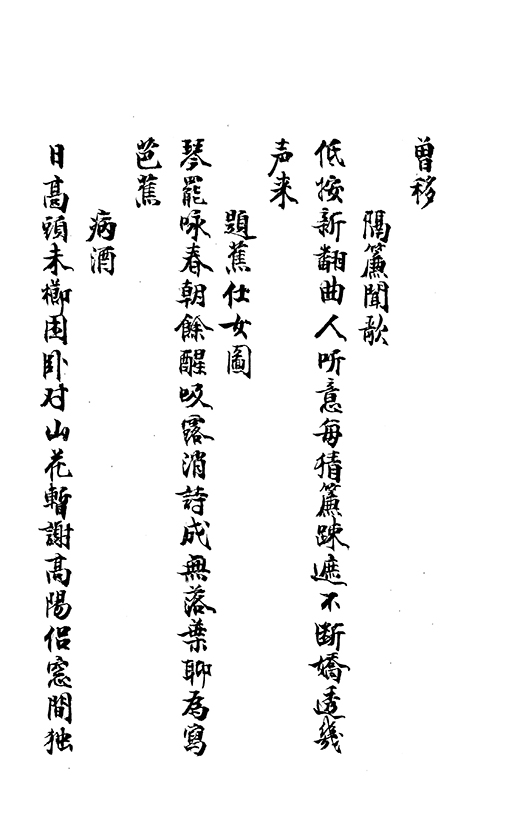 曾移
隔簾聞歌
低按新翻曲人听意每猜簾踈遮不断嬌透幾
声来
題蕉仕女圖
琴罷咏春朝餘酲吸露消詩成無落葉聊為寫
芭蕉
病酒
日高頭未櫛困卧对山花暫謝高陽侣窓間独